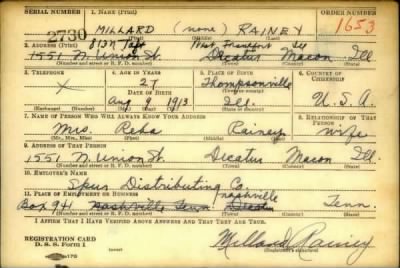 SERIAL NUMBER 1. NAME (Print) ORDER NUMBER
2730 MILLARD (none) RAINEY 1653
2. ADDRESS (Print) 813 N Taft West Frankfort Ill
1551 N. Union St. Dicatur Macon Ill
(Number and street or R. F. D. number) (Town) (County) (State)
3. TELEPHONE 4. AGE IN YEARS 5. PLACE OF BIRTH 6. COUNTRY OF CITIZENSHIP
X 27 Thompsonville
DATE OF BIRTH
Aug 9 1913 Ill. U. S. A.
(Exchange) (Number) (Mo.) (Day) (Yr.) (State or country)
7. NAME OF PERSON WHO WILL ALWAYS KNOW YOUR ADDRESS 8. RELATIONSHIP OF THAT PERSON
Mrs. Reba Rainey wife
(Mr., Mrs., Miss) (First) (Middle) (Last)
9. ADDRESS OF THAT PERSON
1551 N. Union St. Dicatur Macon Ill.
(Number and street or R. F. D. number) (Town) (County) (State)
10. EMPLOYER'S NAME
Spur Distributing Co.
11. PLACE OF EMPLOYMENT OR BUSINESS Nashville
Box 941 Nashville Tenn. Tenn.
(Number and street or R. F. D. number) (Town) (County) (State)
I AFFIRM THAT I HAVE VERIFIED ABOVE ANSWERS AND THAT THEY ARE TRUE.
REGISTRATION CARD
D. S. S. Form 1 Millard Rainey
(Registrant's signature)